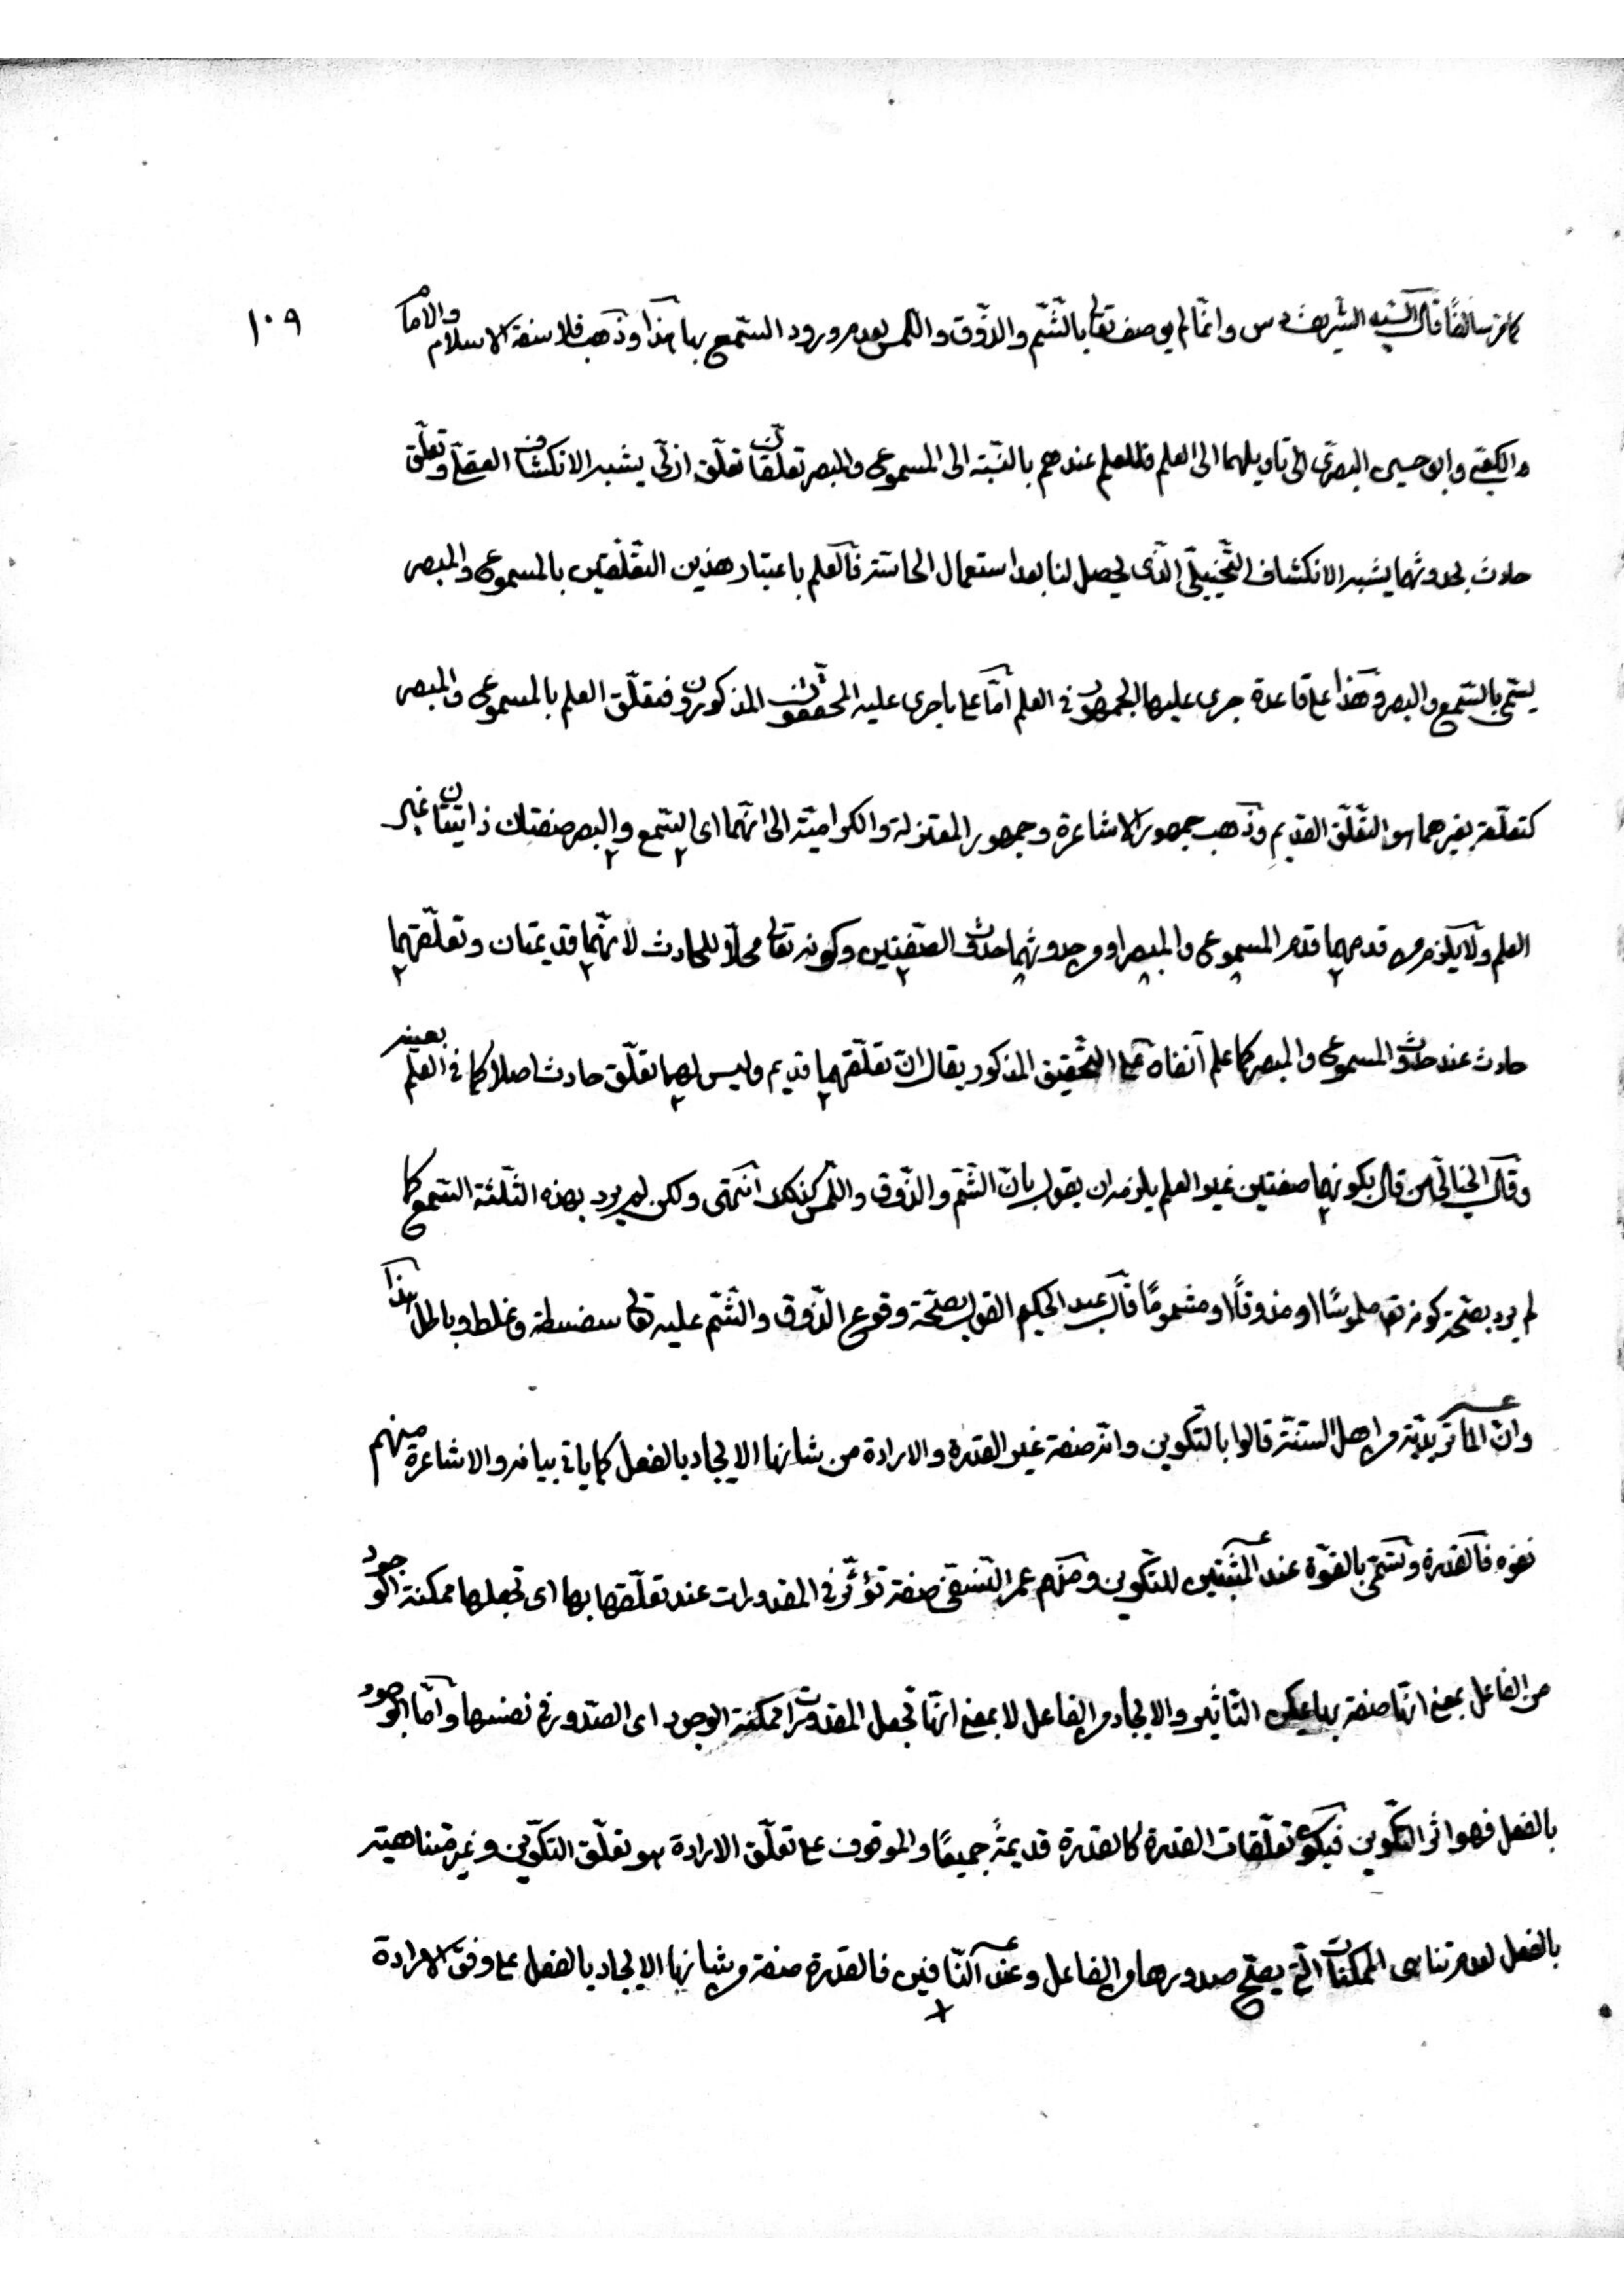 ١٠٩
كامر سالفا قال السيد الشريف قدس وانما لم يوصف تعالى بالشّم والذّوق واللمس لعدم ورود السّمع بها هذا وذهب فلاسفة الاسلام والامام
والكعبى وابو حسين البصرى الى تاويلهما الى العلم فللعلم عندهم بالنسبة الى المسموع والمبصر تعلّقان تعلّق ازلىّ يشبه الانكشاف العقلىّ وتعلّق
حادث بحدوثهما يشبه الانكشاف التّخييلىّ الّذى يحصل لنا بعد استعمال الحاسّة فالعلم باعتبار هذين التّعلّقين بالمسموع والمبصر
يسمّى بالسّمع والبصر وهذا على قاعدة جرى عليها الجمهور فى العلم امّا على ما جرى عليه المحققون المذكورون فتعلّق العلم بالمسموع والمبصر
كتعلّقه بغيرهما هو التعلّق القديم وذهب جمهور الاشاعرة وجمهور المعتزلة والكراميّة الى انّهما اى السّمع والبصر صفتان ذاتيّتان غير
العلم ولا يلزم من قدمهما قدم المسموع والمبصر او من حدوثهما حدوث الصّفتين وكونه تعالى محلّا للحادث لانّهما قديمتان وتعلّقهما
حادث عند حدوث المسموع والمبصر كما علم آنفا وعلى التّحقيق المذكور يقال انّ تعلّقهما قديم وليس لهما تعلّق حادث اصلا كما فى العلم بعينه
وقال الخيالىّ من قال بكونهما صفتين غير العلم يلزمه ان يقول بانّ الشّم والذّوق واللّمس كذلك انتهى ولكن لم يرد بهذه الثّلثة السّمع كما
لم يرد بصحّة كونه تع ملموسًا او مذوقًا او مشمومًا قال عبد الحكيم القول بصحّة وقوع الذّوق والشّم عليه تعالى سفسطة وغلط وباطل هذا
وانّ الماتريديّة من اهل السنّة قالوا بالتّكوين وانّه صفة غير القدرة والارادة من شانها الايجاد بالفعل كما ياتى بيانه والاشاعرة منهم
نفوه فالقدرة وتسمّى بالقوّة عند المثبتين للتّكوين ومنهم عمر النّسفىّ صفة تؤثّر فى المقدورات عند تعلّقها بها اى تجعلها ممكنة الوجود
من الفاعل بمعنى انّها صفة بها يمكن التّاثير والايجاد من الفاعل لا بمعنى انّها تجعل المقدورات ممكنة الوجود اى الصّدور فى نفسها وامّا الوجود
بالفعل فهو اثر التّكوين فيكون تعلّقات القدرة كالقدرة قديمةً جميعًا والموقوف على تعلّق الارادة هو تعلّق التكوين وغير متناهية
بالفعل لعدم تناهى الممكنات الّتى يصحّ صدورها من الفاعل وعند النّافين فالقدرة صفة من شانها الايجاد بالفعل على وفق الارادة